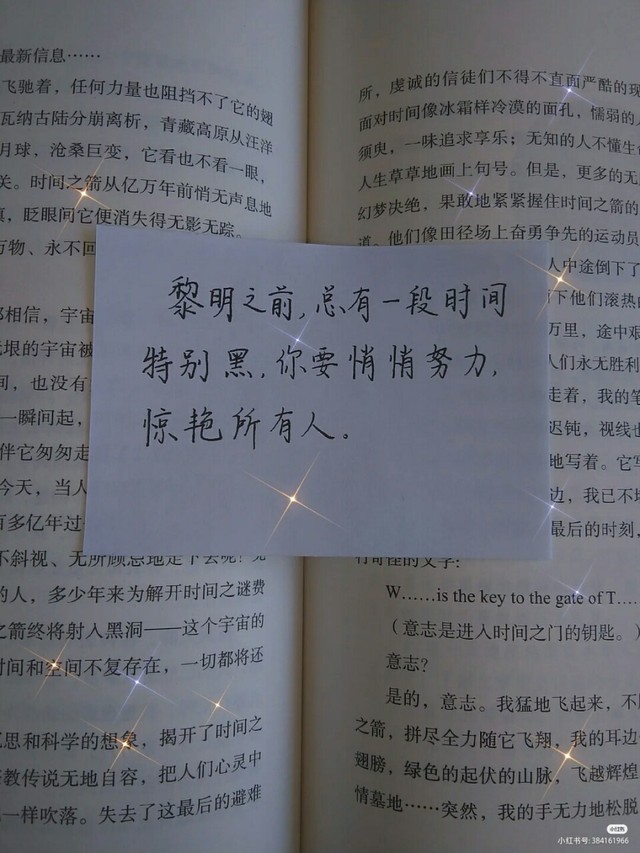 最新信息……
飞驰着，任何力量也阻挡不了它的翅
瓦纳古陆分崩离析，青藏高原从汪洋
月球，沧桑巨变，它看也不看一眼，
关。时间之箭从亿万年前悄无声息地
眨眼间它便消失得无影无踪。
万物、永不回
相信，宇宙
垠的宇宙被
间，也没有
一瞬间起，
伴它匆匆走
今天，当人
百多亿年过
不斜视、无所顾忌地走下去呢？
的人，多少年来为解开时间之谜费
之箭终将射入黑洞——这个宇宙的
时间和空间不复存在，一切都将还
思和科学的想象，揭开了时间之
教传说无地自容，把人们心灵中
一样吹落。失去了这最后的避难
黎明之前，总有一段时间
特别黑，你要悄悄努力，
惊艳所有人。
所，虔诚的信徒们不得不直面严酷的现
面对时间像冰霜样冷漠的面孔，懦弱的人
须臾，一味追求享乐；无知的人不懂生
人生草草地画上句号。但是，更多的无
幻梦决绝，果敢地紧紧握住时间之箭的
道。他们像田径场上奋勇争先的运动员
人中途倒下了
下他们滚热的
万里，途中艰
人们永无胜利
走着，我的笔
迟钝，视线也
地写着。它写
边，我已不堪
最后的时刻，
行奇怪的文字：
W……is the key to the gate of T……
（意志是进入时间之门的钥匙。）
意志？
是的，意志。我猛地飞起来，不
之箭，拼尽全力随它飞翔，我的耳边
翅膀，绿色的起伏的山脉，飞越辉煌
情墓地……突然，我的手无力地松脱
小红书
小红书号: 384161966